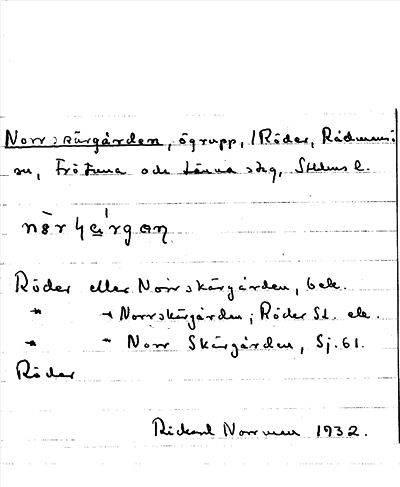 Norrskärgården, ögrupp, /Röder, Rådmansö
sn, Frötuna och Länna skg, Sthlms l.
Röder eller Norrskärgården, bek.
" " Norrskärgården; Röder St. ek.
" " Norr Skärgården, Sj. 61.
Röder
Rickard Norrman 1932.